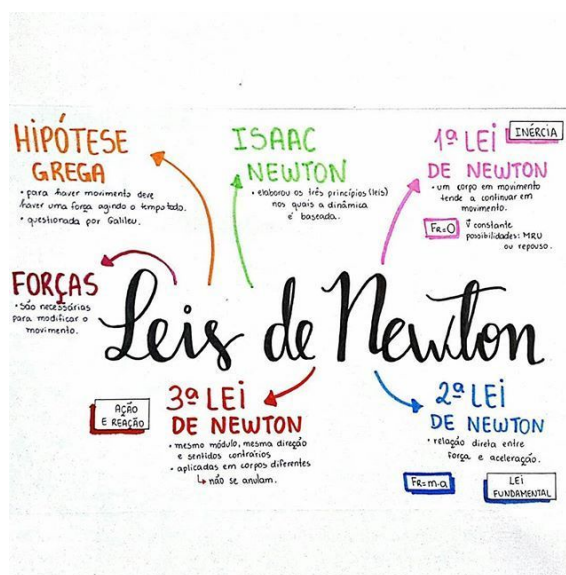 HIPÓTESE
GREGA
• para haver movimento deve
haver uma força agindo o tempo todo.
• questionada por Galileu.
ISAAC
NEWTON
• elaborou os três princípios (leis)
nos quais a dinâmica
é baseada.
1ª LEI
INÉRCIA
DE NEWTON
• um corpo em movimento
tende a continuar em
movimento.
FR=0
v⃗ constante
possibilidades: MRU
ou repouso.
FORÇAS
• São necessárias
para modificar o
movimento.
Leis de Newton
AÇÃO
E REAÇÃO
3ª LEI
DE NEWTON
• mesmo módulo, mesma direção
e sentidos contrários
• aplicadas em corpos diferentes
↳ não se anulam.
2ª LEI
DE NEWTON
• relação direta entre
força e aceleração.
FR=m·a
LEI
FUNDAMENTAL